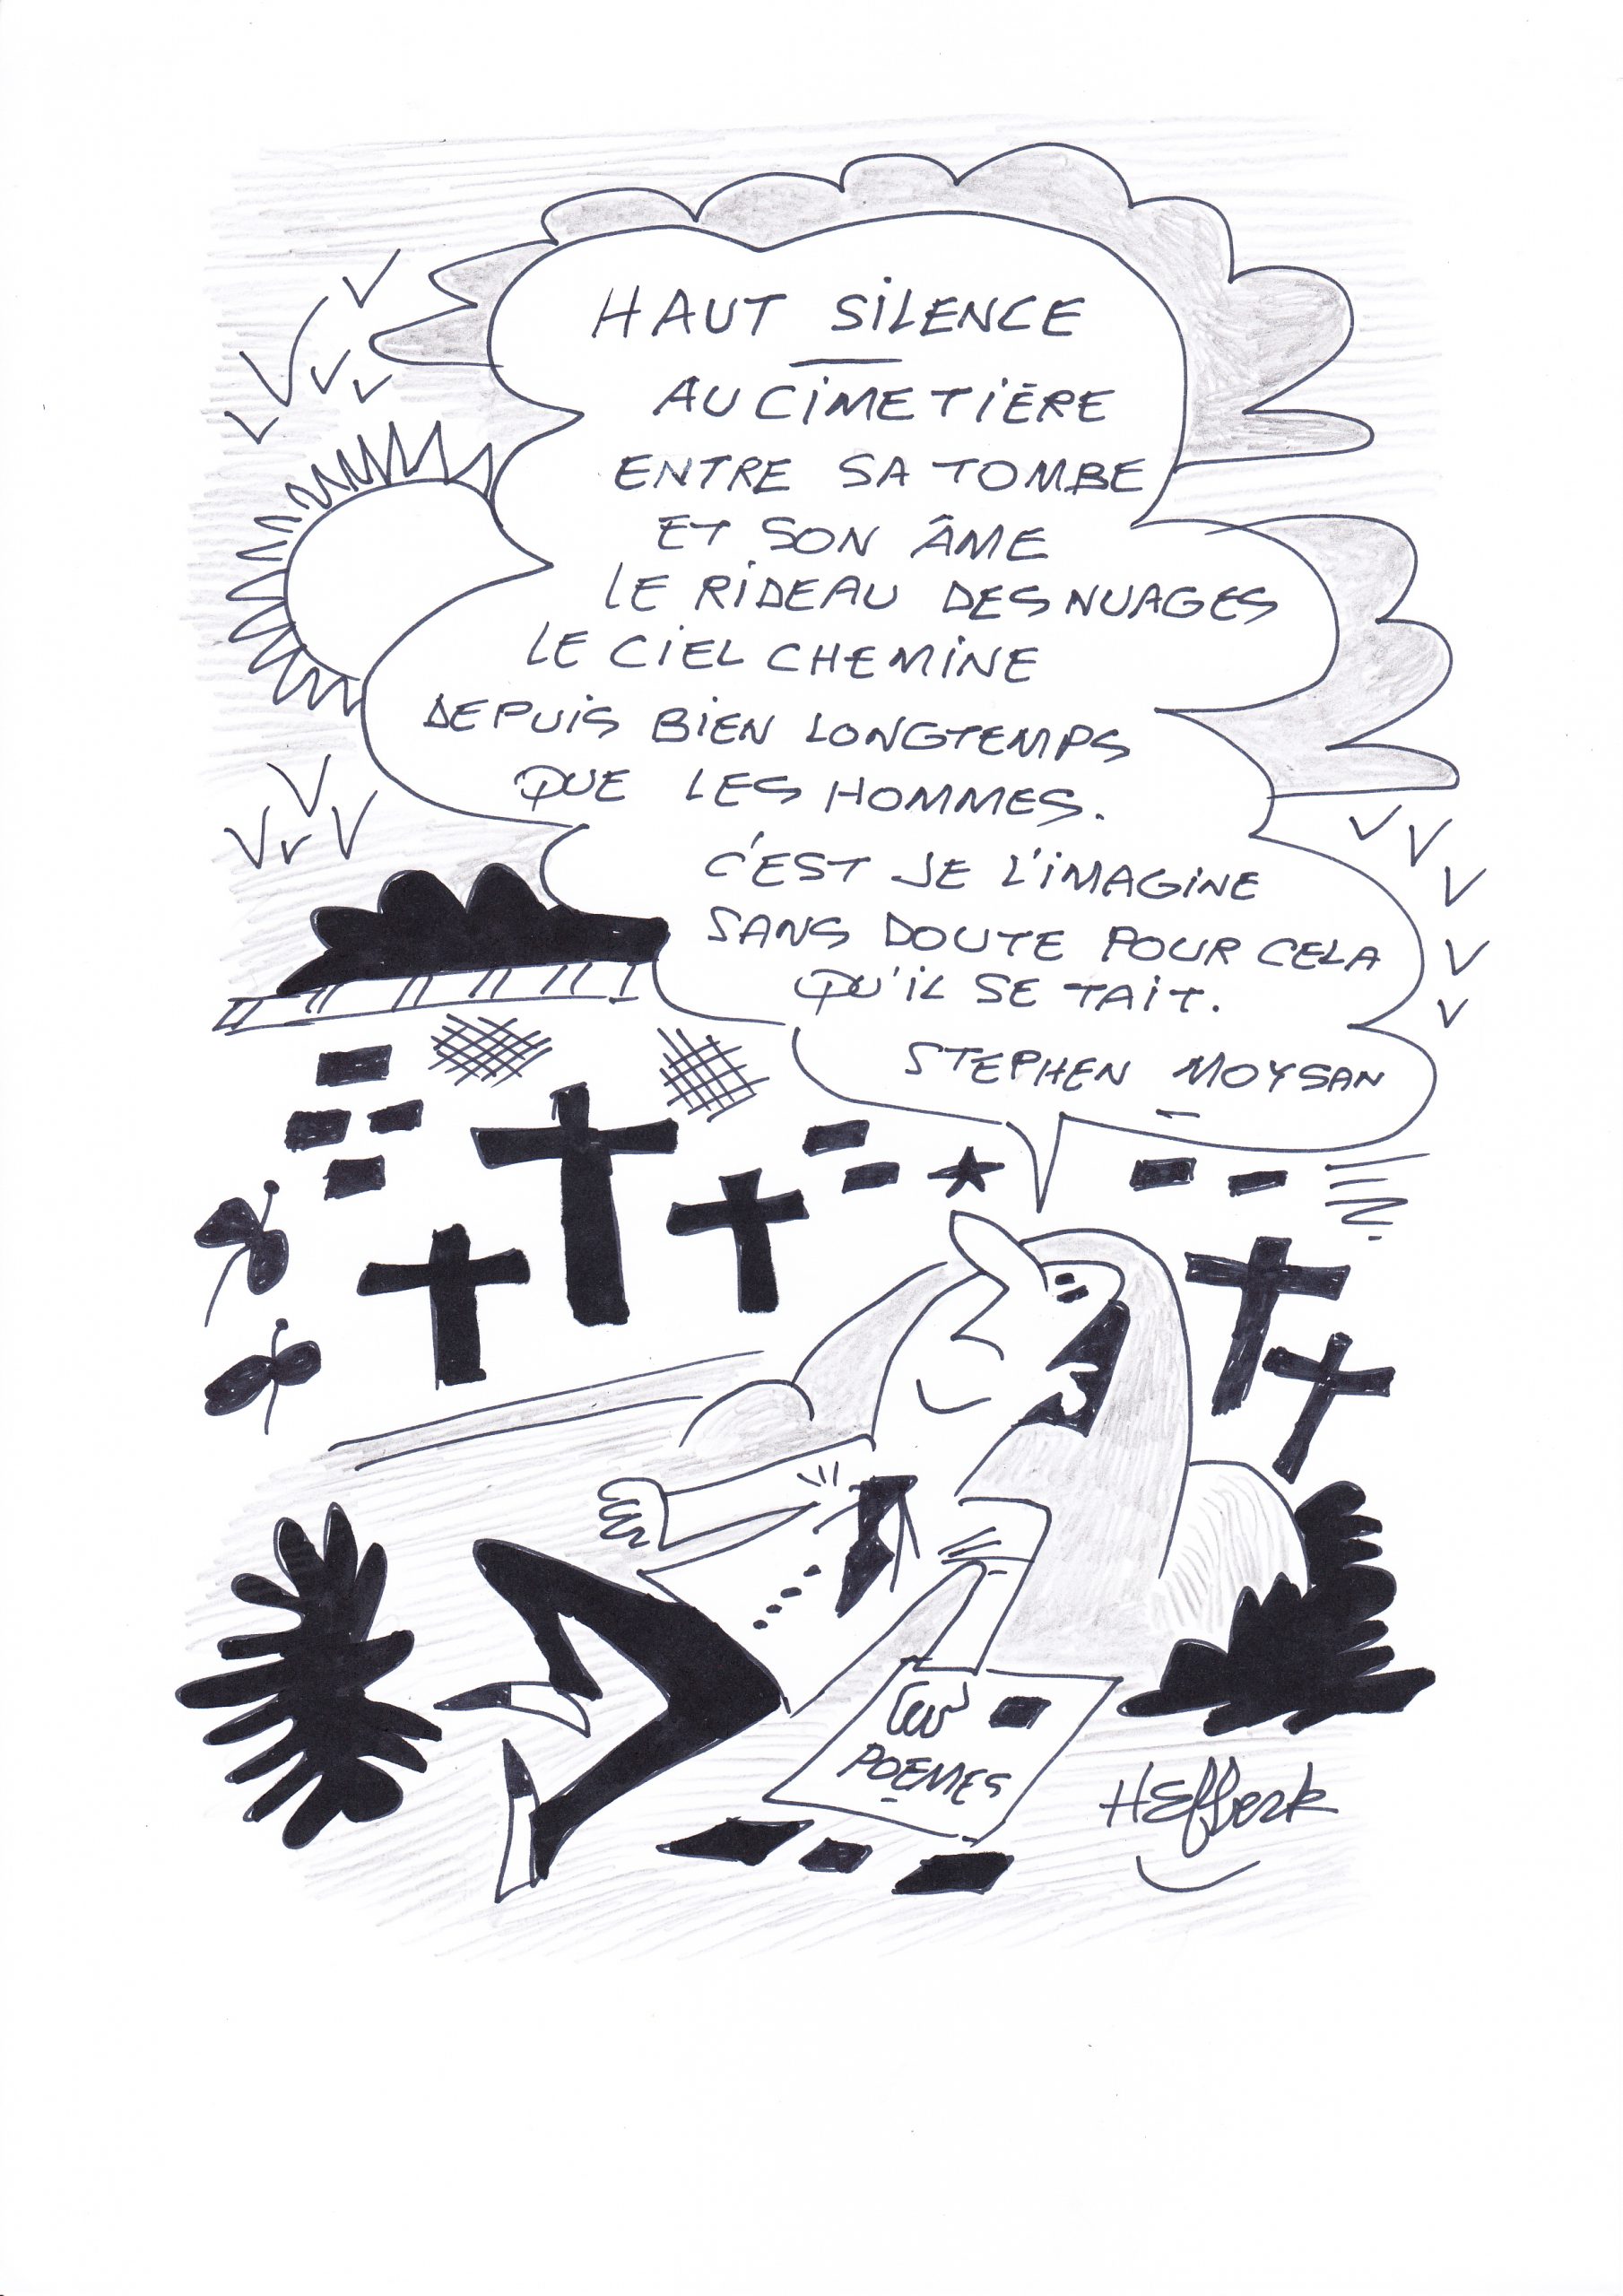 HAUT SILENCE
AU CIMETIÈRE
ENTRE SA TOMBE
ET SON ÂME
LE RIDEAU DES NUAGES
LE CIEL CHEMINE
DEPUIS BIEN LONGTEMPS
QUE LES HOMMES.
C'EST JE L'IMAGINE
SANS DOUTE POUR CELA
QU'IL SE TAIT.
STEPHEN MOYSAN
POEMES